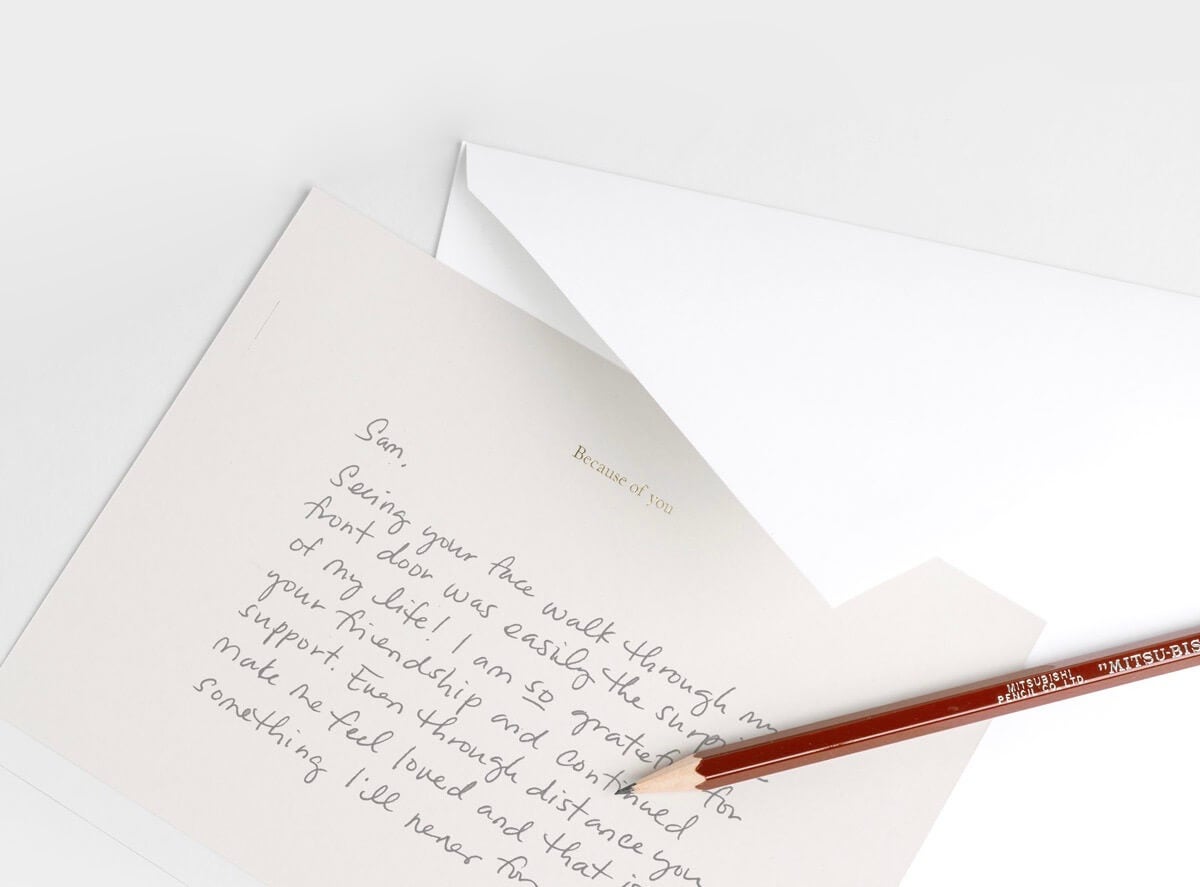 Because of you
Sam,
Seeing your face walk through my
front door was easily the surprise
of my life! I am so grateful for
your friendship and continued
support. Even through distance you
make me feel loved and that is
something I'll never
MITSUBISHI
PENCIL CO. LTD.
"MITSU-BIS